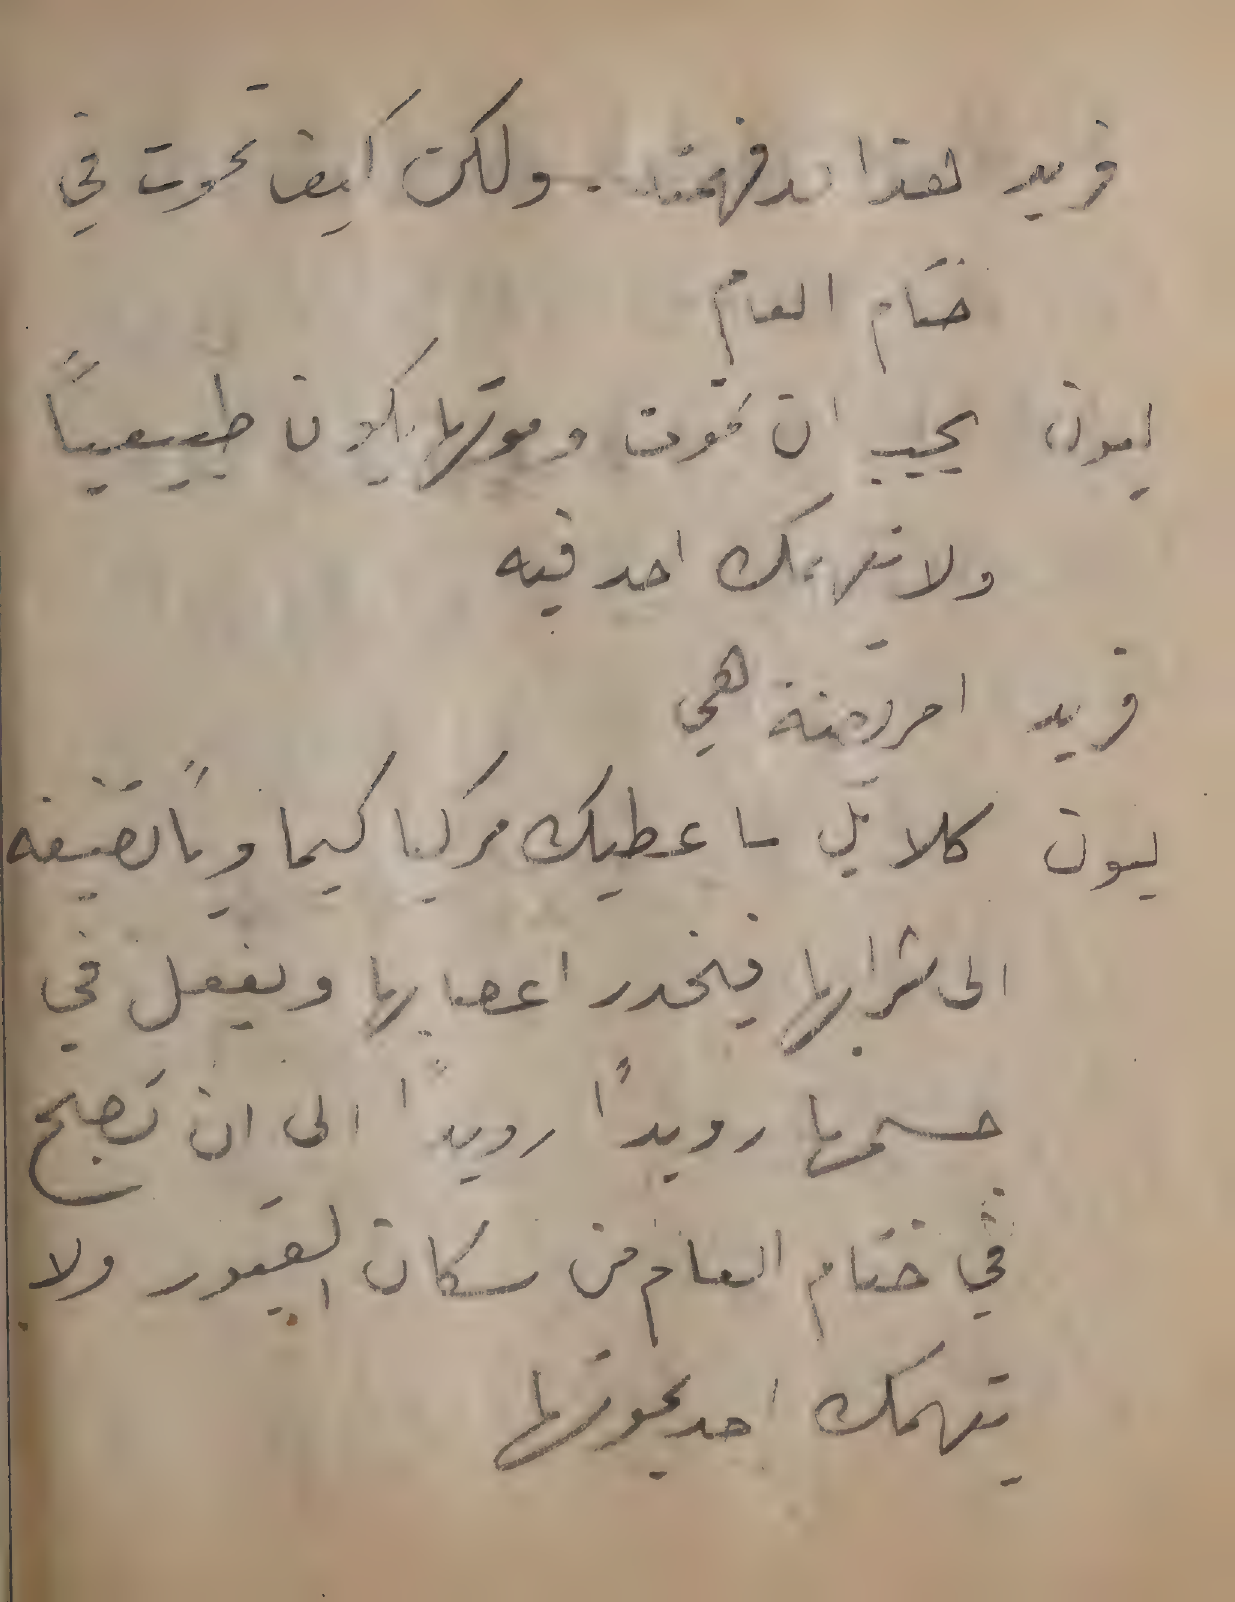 فريد لهذا قد فهمته . ولكن كيف تموت في
ختام العام
ليون يجب ان تموت وموتها يكون طبيعياً
ولا يتهمك احد فيه
فريد امريضة هي
ليون كلا بل ساعطيك مركبا كيماوياً تضيفه
الى شرابها فيخدر اعصابها ويفعل في
جسمها رويداً رويداً الى ان تصبح
في ختام العام من سكان القبور ولا
يتهمك احد بموتها